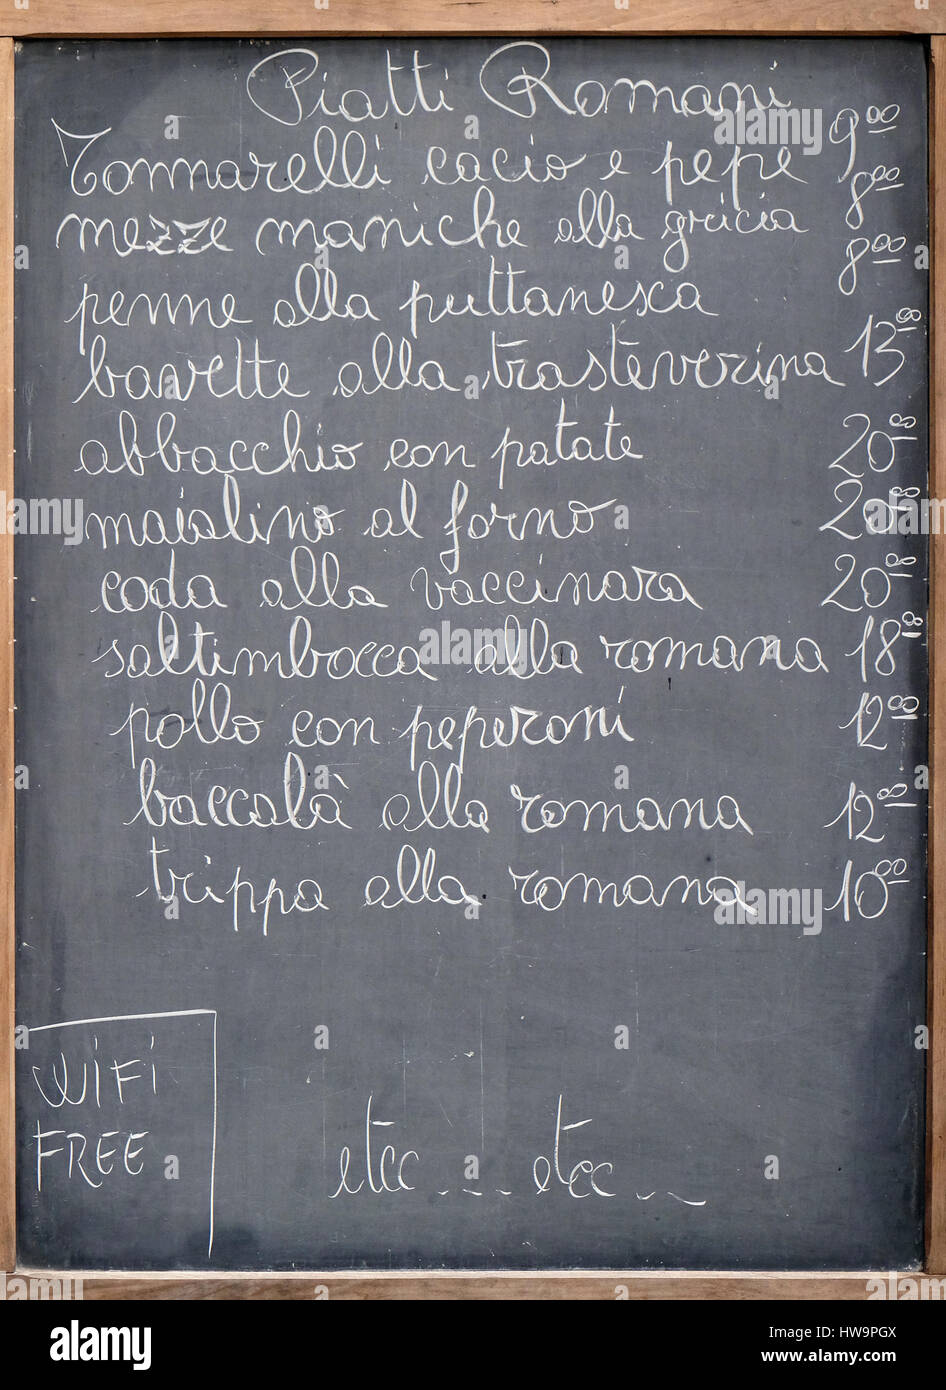 Piatti Romani
Tonnarelli cacio e pepe 9.00
mezze maniche alla gricia 8.00
penne alla puttanesca 8.00
bavette alla trasteverina 13.00
abbacchio con patate 20.00
maialino al forno 20.00
coda alla vaccinara 20.00
saltimbocca alla romana 18.00
pollo con peperoni 12.00
baccalà alla romana 12.00
trippa alla romana 10.00
WiFi
FREE
etcc ... etcc ...
alamy stock photo
HW9PGX
www.alamy.com